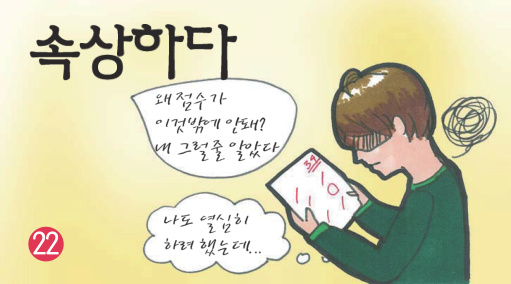 속상하다
왜 점수가
이것밖에 안돼?
내 그럴 줄 알았다
나도 열심히
하려 했는데...
22